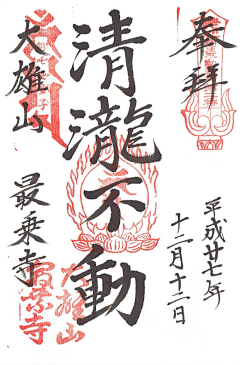 奉拝
平成廿七年
十二月十二日
清瀧不動
大雄山
最乗寺
大雄山